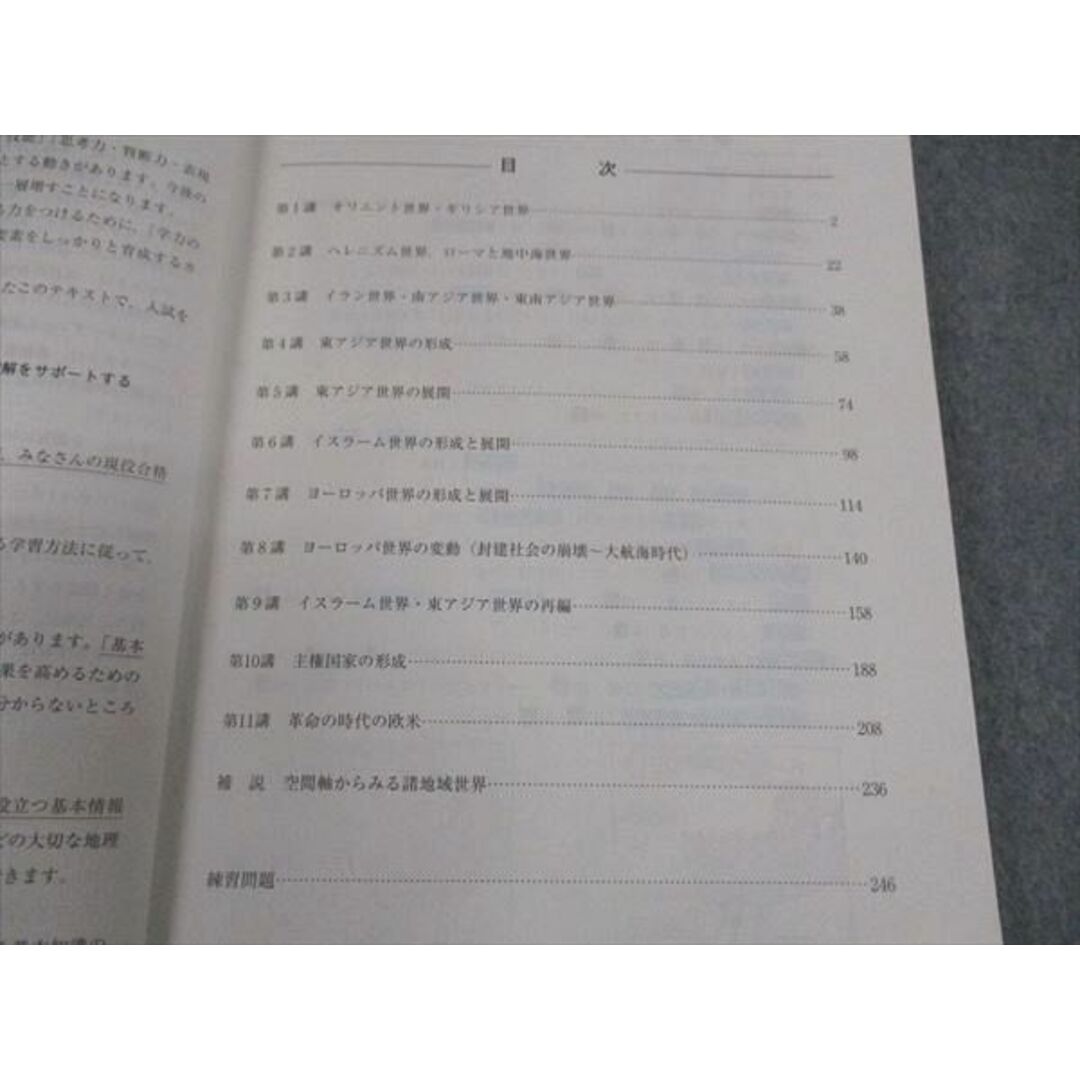 技能」「思考力・判断力・表現
とする動きがあります。今後の
一層増すことになります。
る力をつけるために、「学力の
要素をしっかりと育成するカ
たこのテキストで、入試を
解をサポートする
、みなさんの現役合格
る学習方法に従って、
があります。「基本
果を高めるための
分からないところ
役立つ基本情報
どの大切な地理
きます。
目 次
第1講 オリエント世界・ギリシア世界 2
第2講 ヘレニズム世界，ローマと地中海世界 22
第3講 イラン世界・南アジア世界・東南アジア世界 38
第4講 東アジア世界の形成 58
第5講 東アジア世界の展開 74
第6講 イスラーム世界の形成と展開 98
第7講 ヨーロッパ世界の形成と展開 114
第8講 ヨーロッパ世界の変動（封建社会の崩壊～大航海時代） 140
第9講 イスラーム世界・東アジア世界の再編 158
第10講 主権国家の形成 188
第11講 革命の時代の欧米 208
補 説 空間軸からみる諸地域世界 236
練習問題 246